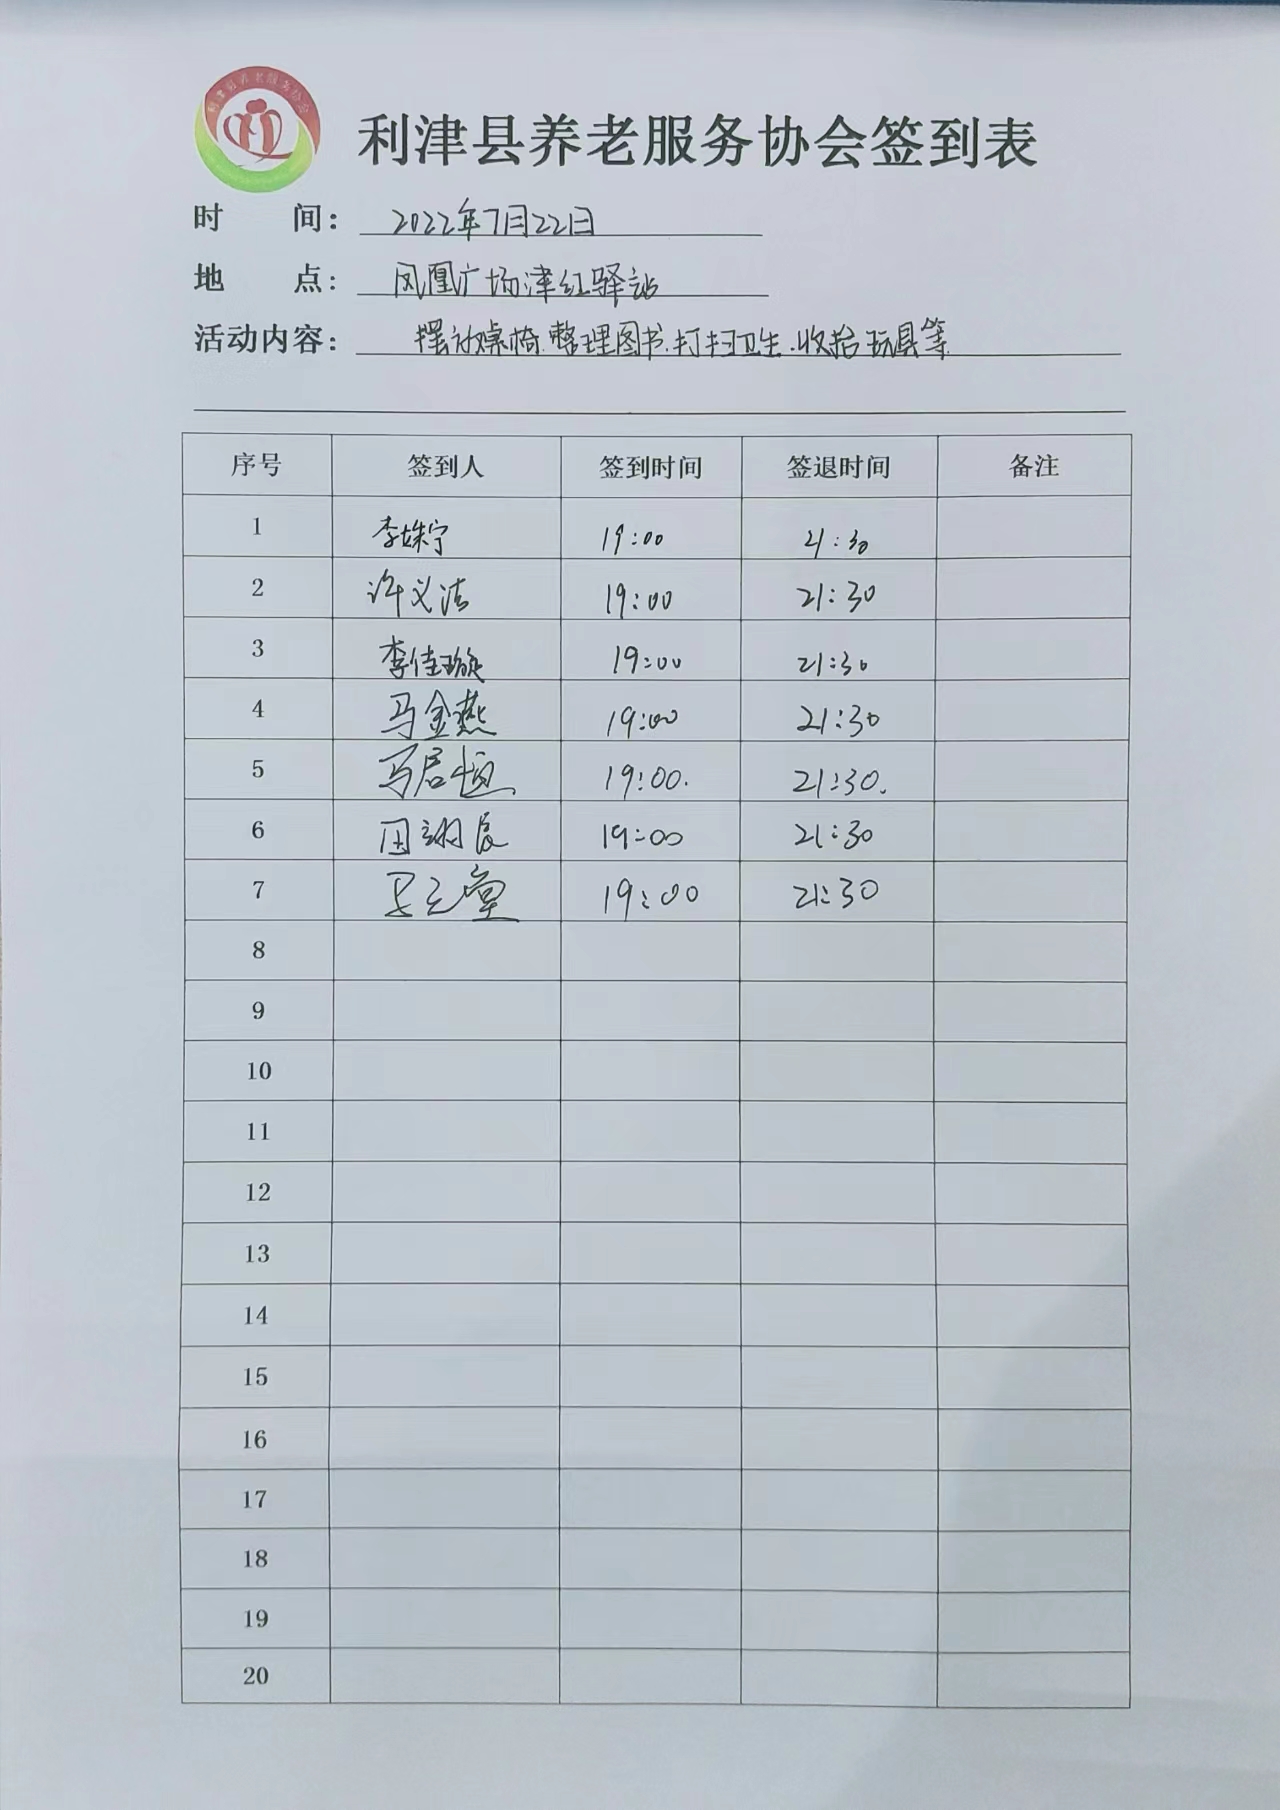 利津县养老服务协会
利津县养老服务协会签到表
时 间: 2022年7月22日
地 点: 凤凰广场津红驿站
活动内容: 摆放桌椅.整理图书.打扫卫生.收拾玩具等
序号 签到人 签到时间 签退时间 备注
1 李姝宁 19:00 21:30
2 许义洁 19:00 21:30
3 李佳璇 19:00 21:30
4 马金燕 19:00 21:30
5 马居恒 19:00. 21:30.
6 田翊辰 19:00 21:30
7 19:00 21:30
8
9
10
11
12
13
14
15
16
17
18
19
20